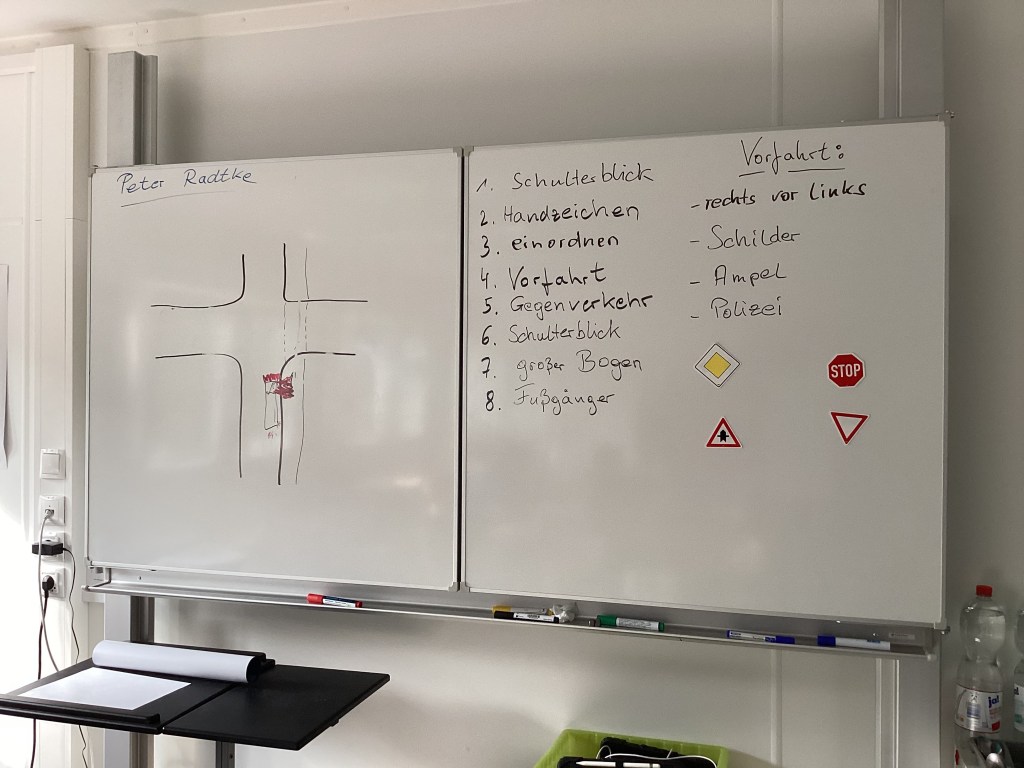 Peter Radtke
1. Schulterblick
2. Handzeichen
3. einordnen
4. Vorfahrt
5. Gegenverkehr
6. Schulterblick
7. großer Bogen
8. Fußgänger
Vorfahrt:
- rechts vor links
- Schilder
- Ampel
- Polizei
STOP
ja!